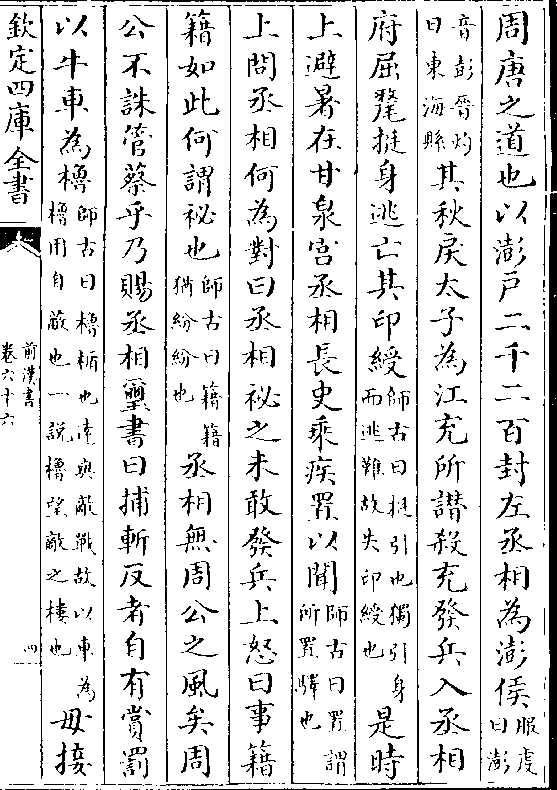 周唐之道也以澎戸二千二百封左丞相為澎侯服䖍曰澎
音彭晉灼曰東海縣其秋戾太子為江充所譖殺充發兵入丞相
府屈氂挺身逃亡其印綬師古曰挺引也獨引身而逃難故失印綬也是時
上避暑在甘泉宫丞相長史乘疾置以聞師古曰置謂所置驛也
上問丞相何為對曰丞相祕之未敢發兵上怒曰事籍
籍如此何謂祕也師古曰籍籍猶紛紛也丞相無周公之風矣周
公不誅管蔡乎乃賜丞相璽書曰捕斬反者自有賞罰
以牛車為櫓師古曰櫓楯也逺與敵戰故以車為櫓用自蔽也一説櫓望敵之樓也毋接
欽定四庫全書
前漢書
卷六十六
四